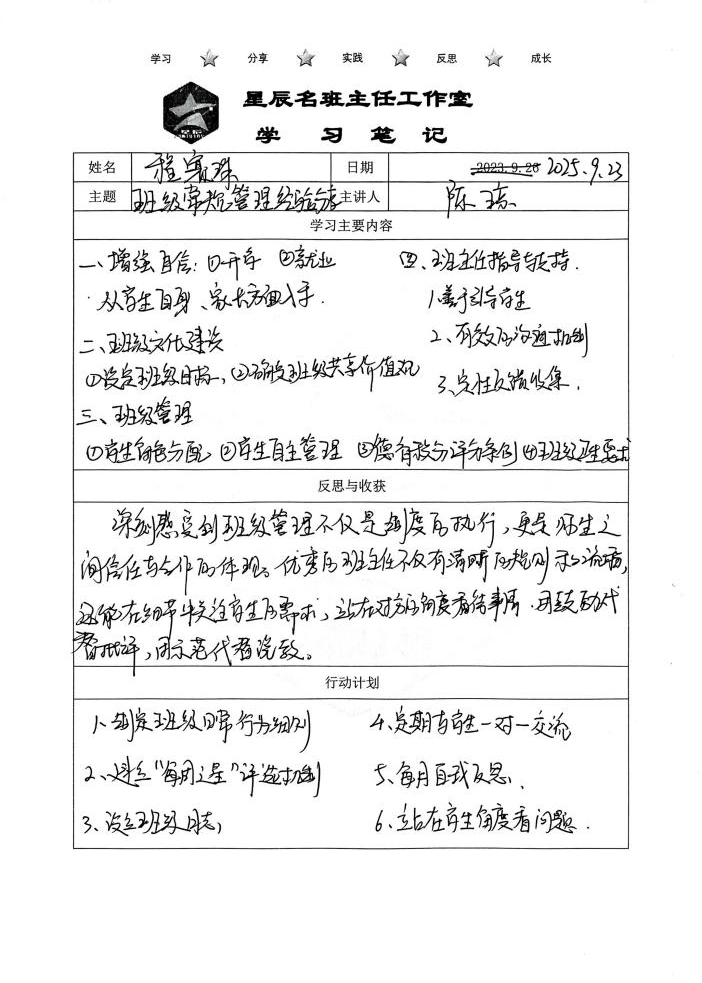 学习 分享 实践 反思 成长
星辰名班主任工作室
学 习 笔 记
姓名 程 日期 2023.9.26 2025.9.23
主题 班级常规管理经验分享 主讲人 陈琼
学习主要内容
一、增强自信：①升学 ②就业
从学生自身、家长方面入手.
二、班级文化建设
①设定班级目标, ②确定班级共享价值观
三、班级管理
①学生角色分配 ②学生自主管理 ③德育积分评分条例 ④班级卫生要求
四、班主任指导与支持.
1.善于引导学生
2、有效的沟通机制
3、定性反馈收集.
反思与收获
深刻感受到班级管理不仅是制度的执行，更是师生之
间信任与合作的体现。优秀的班主任不仅有清晰的规则和流程,
还能在细节中关注学生的需求，站在对方的角度看待事情.用鼓励代
替批评，用示范代替说教。
行动计划
1、制定班级日常行为细则
2、建立“每周之星”评选机制
3、设立班级日志,
4、定期与学生一对一交流
5、每月自我反思、
6、站在学生角度看问题.